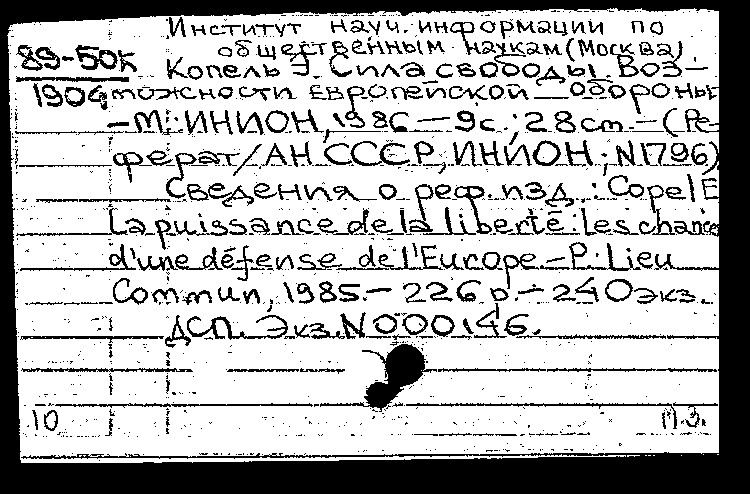 Институт науч. информации по
общественным наукам (Москва).
89-50к
Копель Э. Сила свободы. Воз-
1904
можности европейской обороны
-М.: ИНИОН, 1986 - 9с.; 28 cm. - (Ре-
ферат/АН СССР, ИНИОН; N1796)
Сведения о реф. изд.: Copel E
La puissance de la liberté: les chances
d'une défense de l'Europe. - P.: Lieu
Commun, 1985. - 226 p. - 240 экз.
ДСП. Экз. N 000146.
10 П.З.